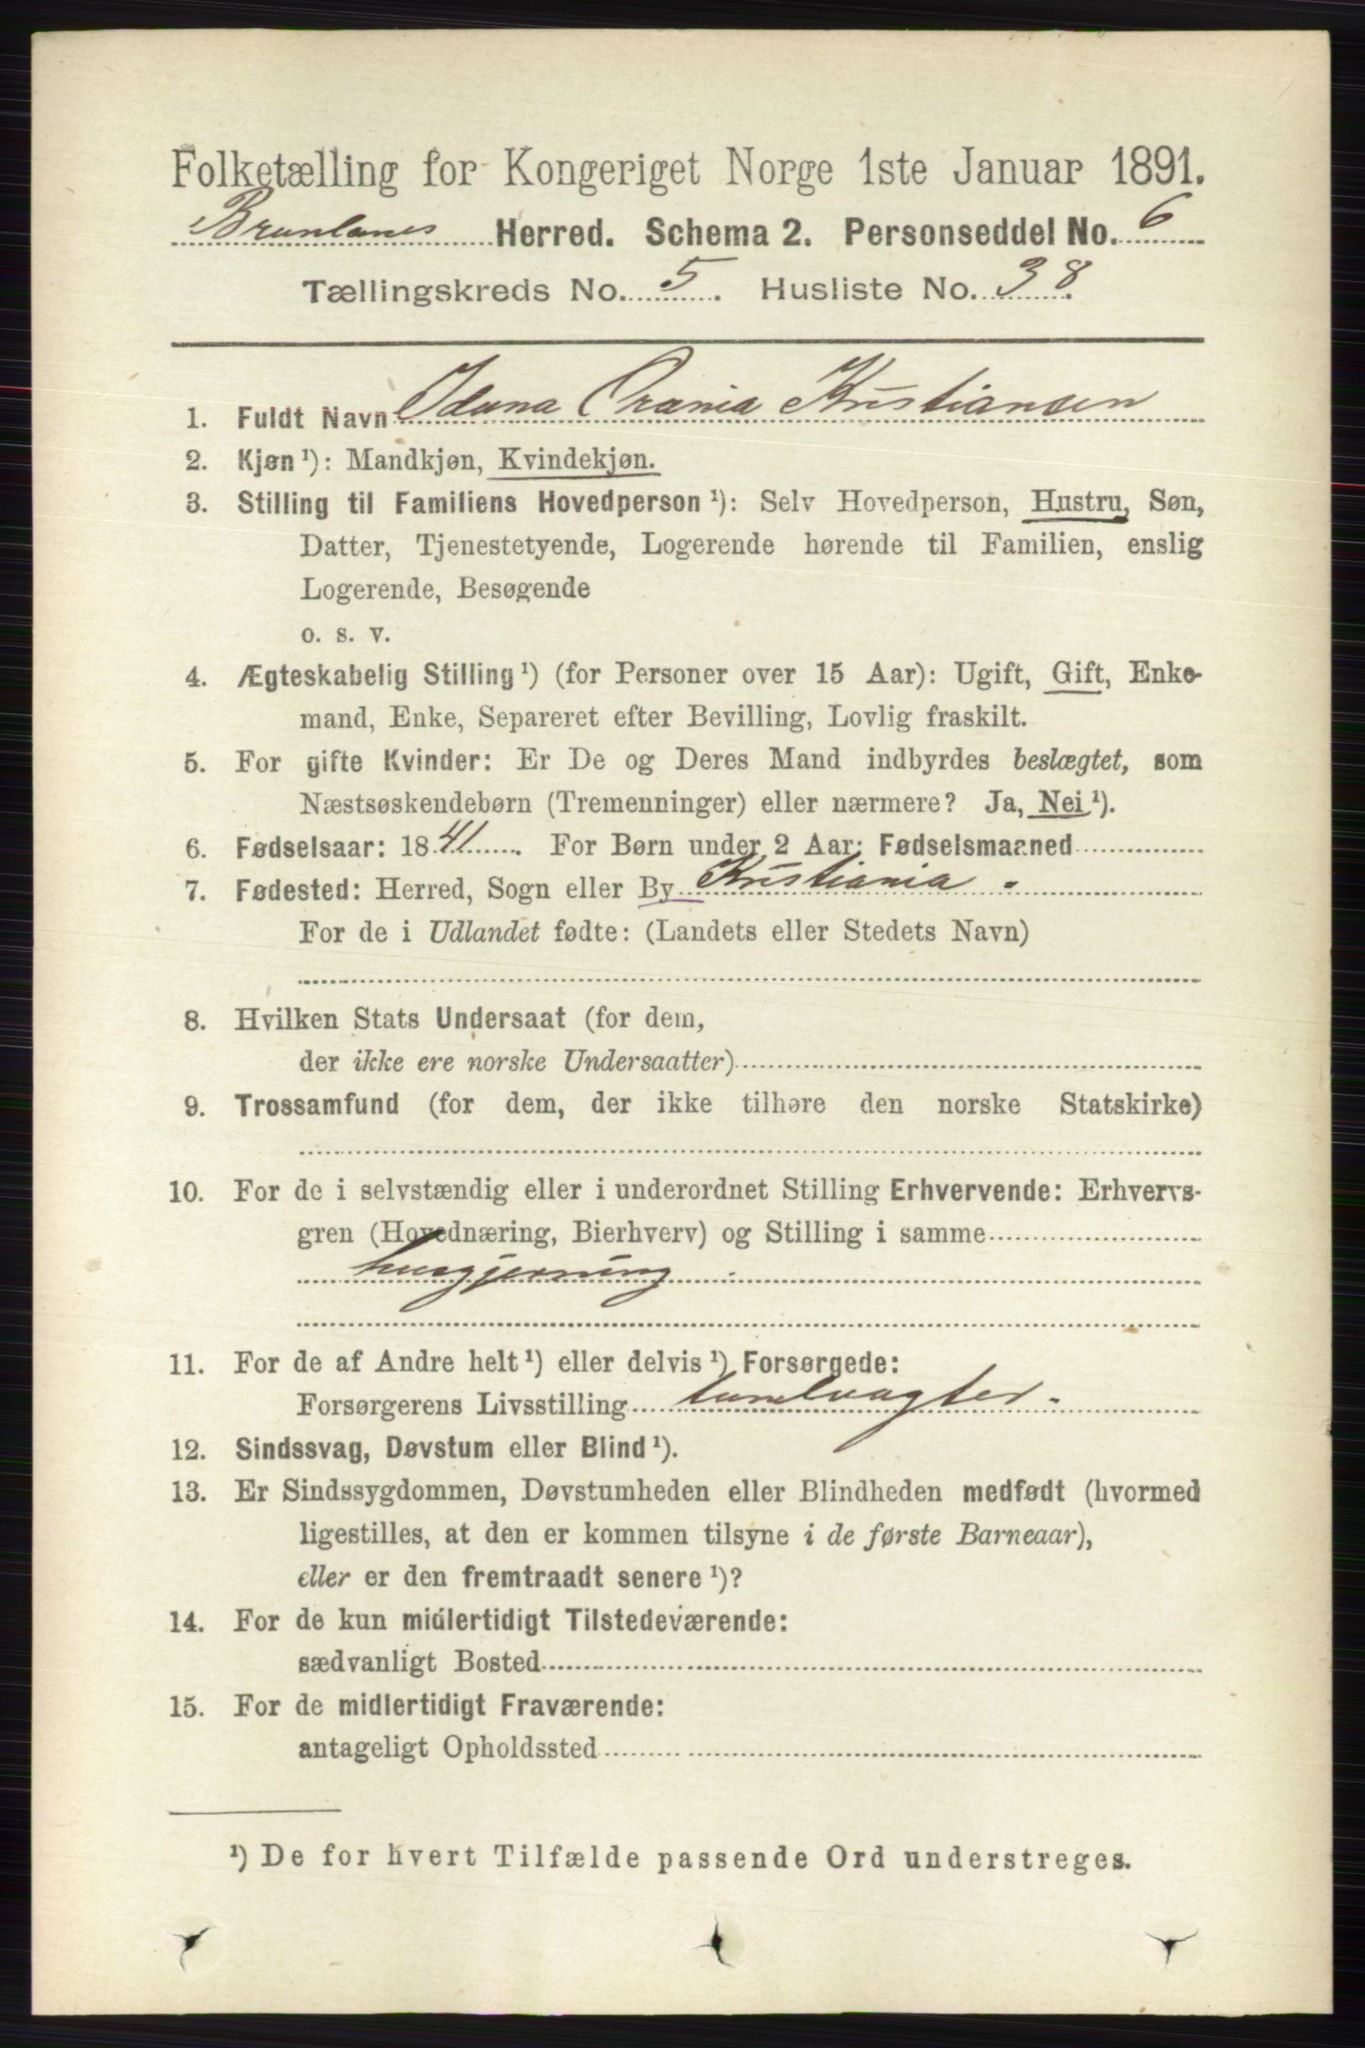 Folketælling for Kongeriget Norge 1ste Januar 1891.
Brunlanes Herred. Schema 2. Personseddel No. 6
Tællingskreds No. 5. Husliste No. 38.
1. Fuldt Navn Iduna Orania Kristiansen
2. Kjøn ¹): Mandkjøn, Kvindekjøn.
3. Stilling til Familiens Hovedperson ¹): Selv Hovedperson, Hustru, Søn,
Datter, Tjenestetyende, Logerende hørende til Familien, enslig
Logerende, Besøgende
o. s. v.
4. Ægteskabelig Stilling ¹) (for Personer over 15 Aar): Ugift, Gift, Enke-
mand, Enke, Separeret efter Bevilling, Lovlig fraskilt.
5. For gifte Kvinder: Er De og Deres Mand indbyrdes beslægtet, som
Næstsøskendebørn (Tremenninger) eller nærmere? Ja, Nei ¹).
6. Fødselsaar: 1841. For Børn under 2 Aar: Fødselsmaaned
7. Fødested: Herred, Sogn eller By Kristiania.
For de i Udlandet fødte: (Landets eller Stedets Navn)
8. Hvilken Stats Undersaat (for dem,
der ikke ere norske Undersaatter)
9. Trossamfund (for dem, der ikke tilhøre den norske Statskirke)
10. For de i selvstændig eller i underordnet Stilling Erhvervende: Erhvervs-
gren (Hovednæring, Bierhverv) og Stilling i samme
husgjerning
11. For de af Andre helt ¹) eller delvis ¹) Forsørgede:
Forsørgerens Livsstilling tunelvagter.
12. Sindssvag, Døvstum eller Blind ¹).
13. Er Sindssygdommen, Døvstumheden eller Blindheden medfødt (hvormed
ligestilles, at den er kommen tilsyne i de første Barneaar),
eller er den fremtraadt senere ¹)?
14. For de kun midlertidigt Tilstedeværende:
sædvanligt Bosted
15. For de midlertidigt Fraværende:
antageligt Opholdssted
¹) De for hvert Tilfælde passende Ord understreges.